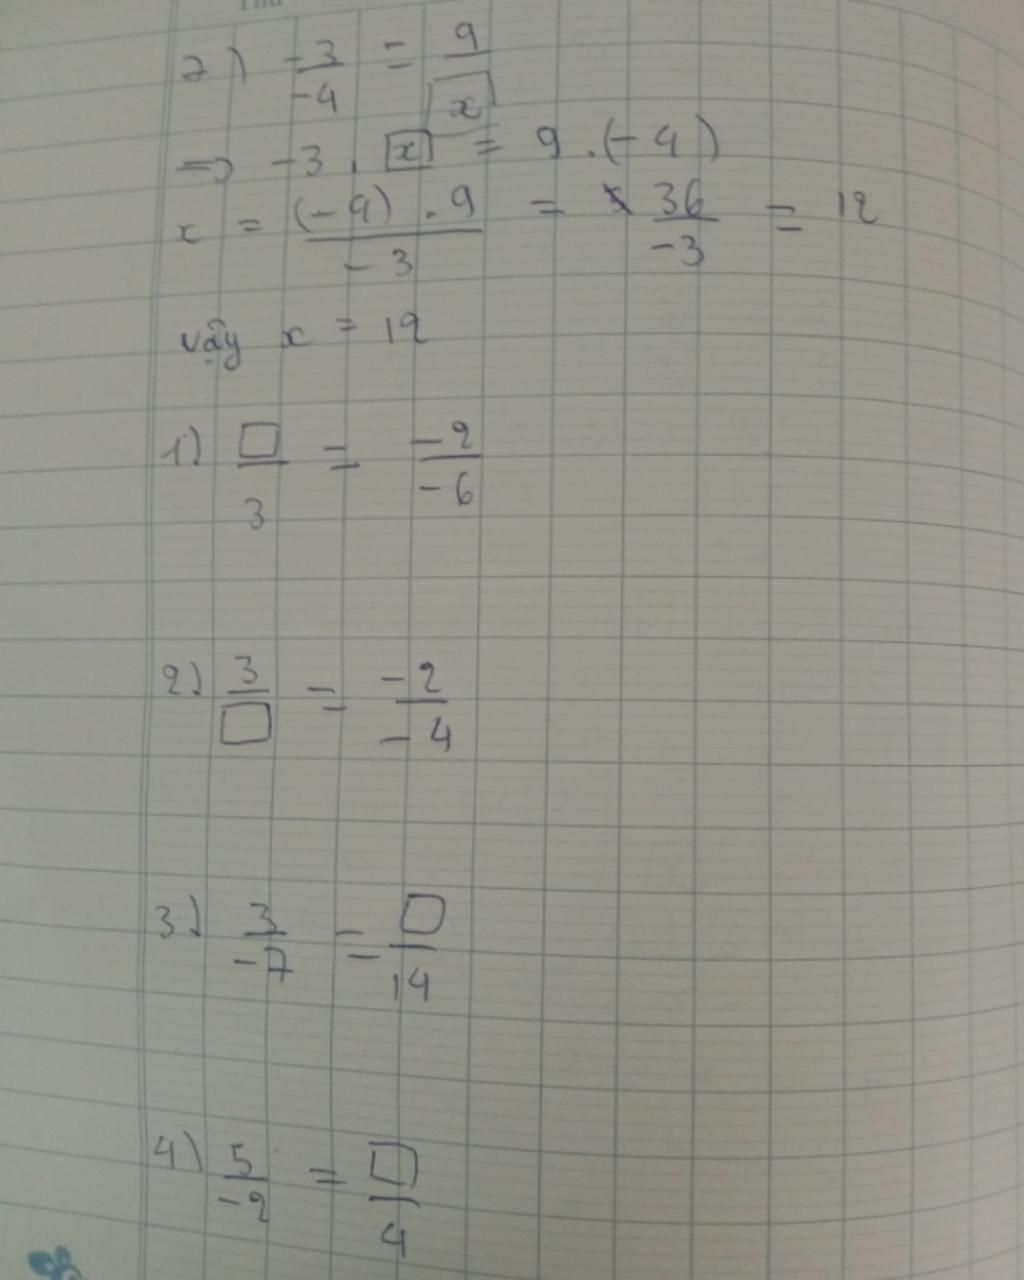 2) -3/-4 = 9/x
=> -3 . x = 9 . (-4)
x = (-4) . 9 / -3 = 36/-3 = 12
vậy x = 12
1) □/3 = -2/-6
2) 3/□ = -2/-4
3) 3/-7 = □/14
4) 5/-2 = □/4